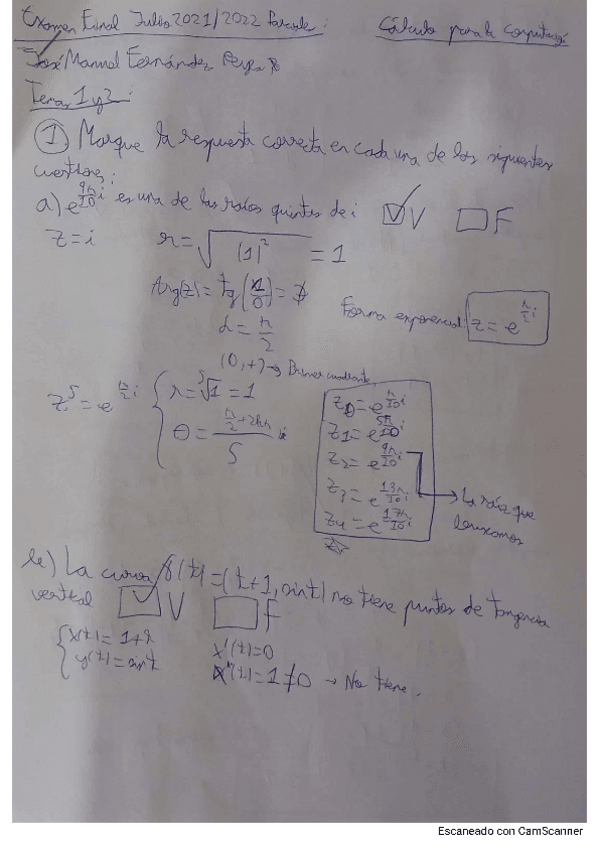 Examen Final Julio 2021/2022 Parciales: Cálculo para la Computación
José Manuel Fernández
Temas 1 y 2:
① Marque la respuesta correcta en cada una de las siguientes
cuestiones:
a) e^{9π/10 i} es una de las raíces quintas de i ☑V ☐F
z = i r = √(|1|²) = 1
Arg(z) = tg(1/0) = ∄
α = π/2
Forma exponencial: z = e^{π/2 i}
(0,+) → Primer cuadrante
z⁵ = e^{π/2 i} { r = ⁵√1 = 1
θ = (π/2 + 2kπ)/5
z0 = e^{π/10 i}
z1 = e^{5π/10 i}
z2 = e^{9π/10 i}
z3 = e^{13π/10 i}
z4 = e^{17π/10 i}
→ La raíz que
buscamos
b) La curva γ(t) = (t+1, sint) no tiene puntos de tangencia
vertical ☑V ☐F
{ x(t) = 1+t
y(t) = sint
x'(t) = 0
x'(t) = 1 ≠ 0 → No tiene.
Escaneado con CamScanner